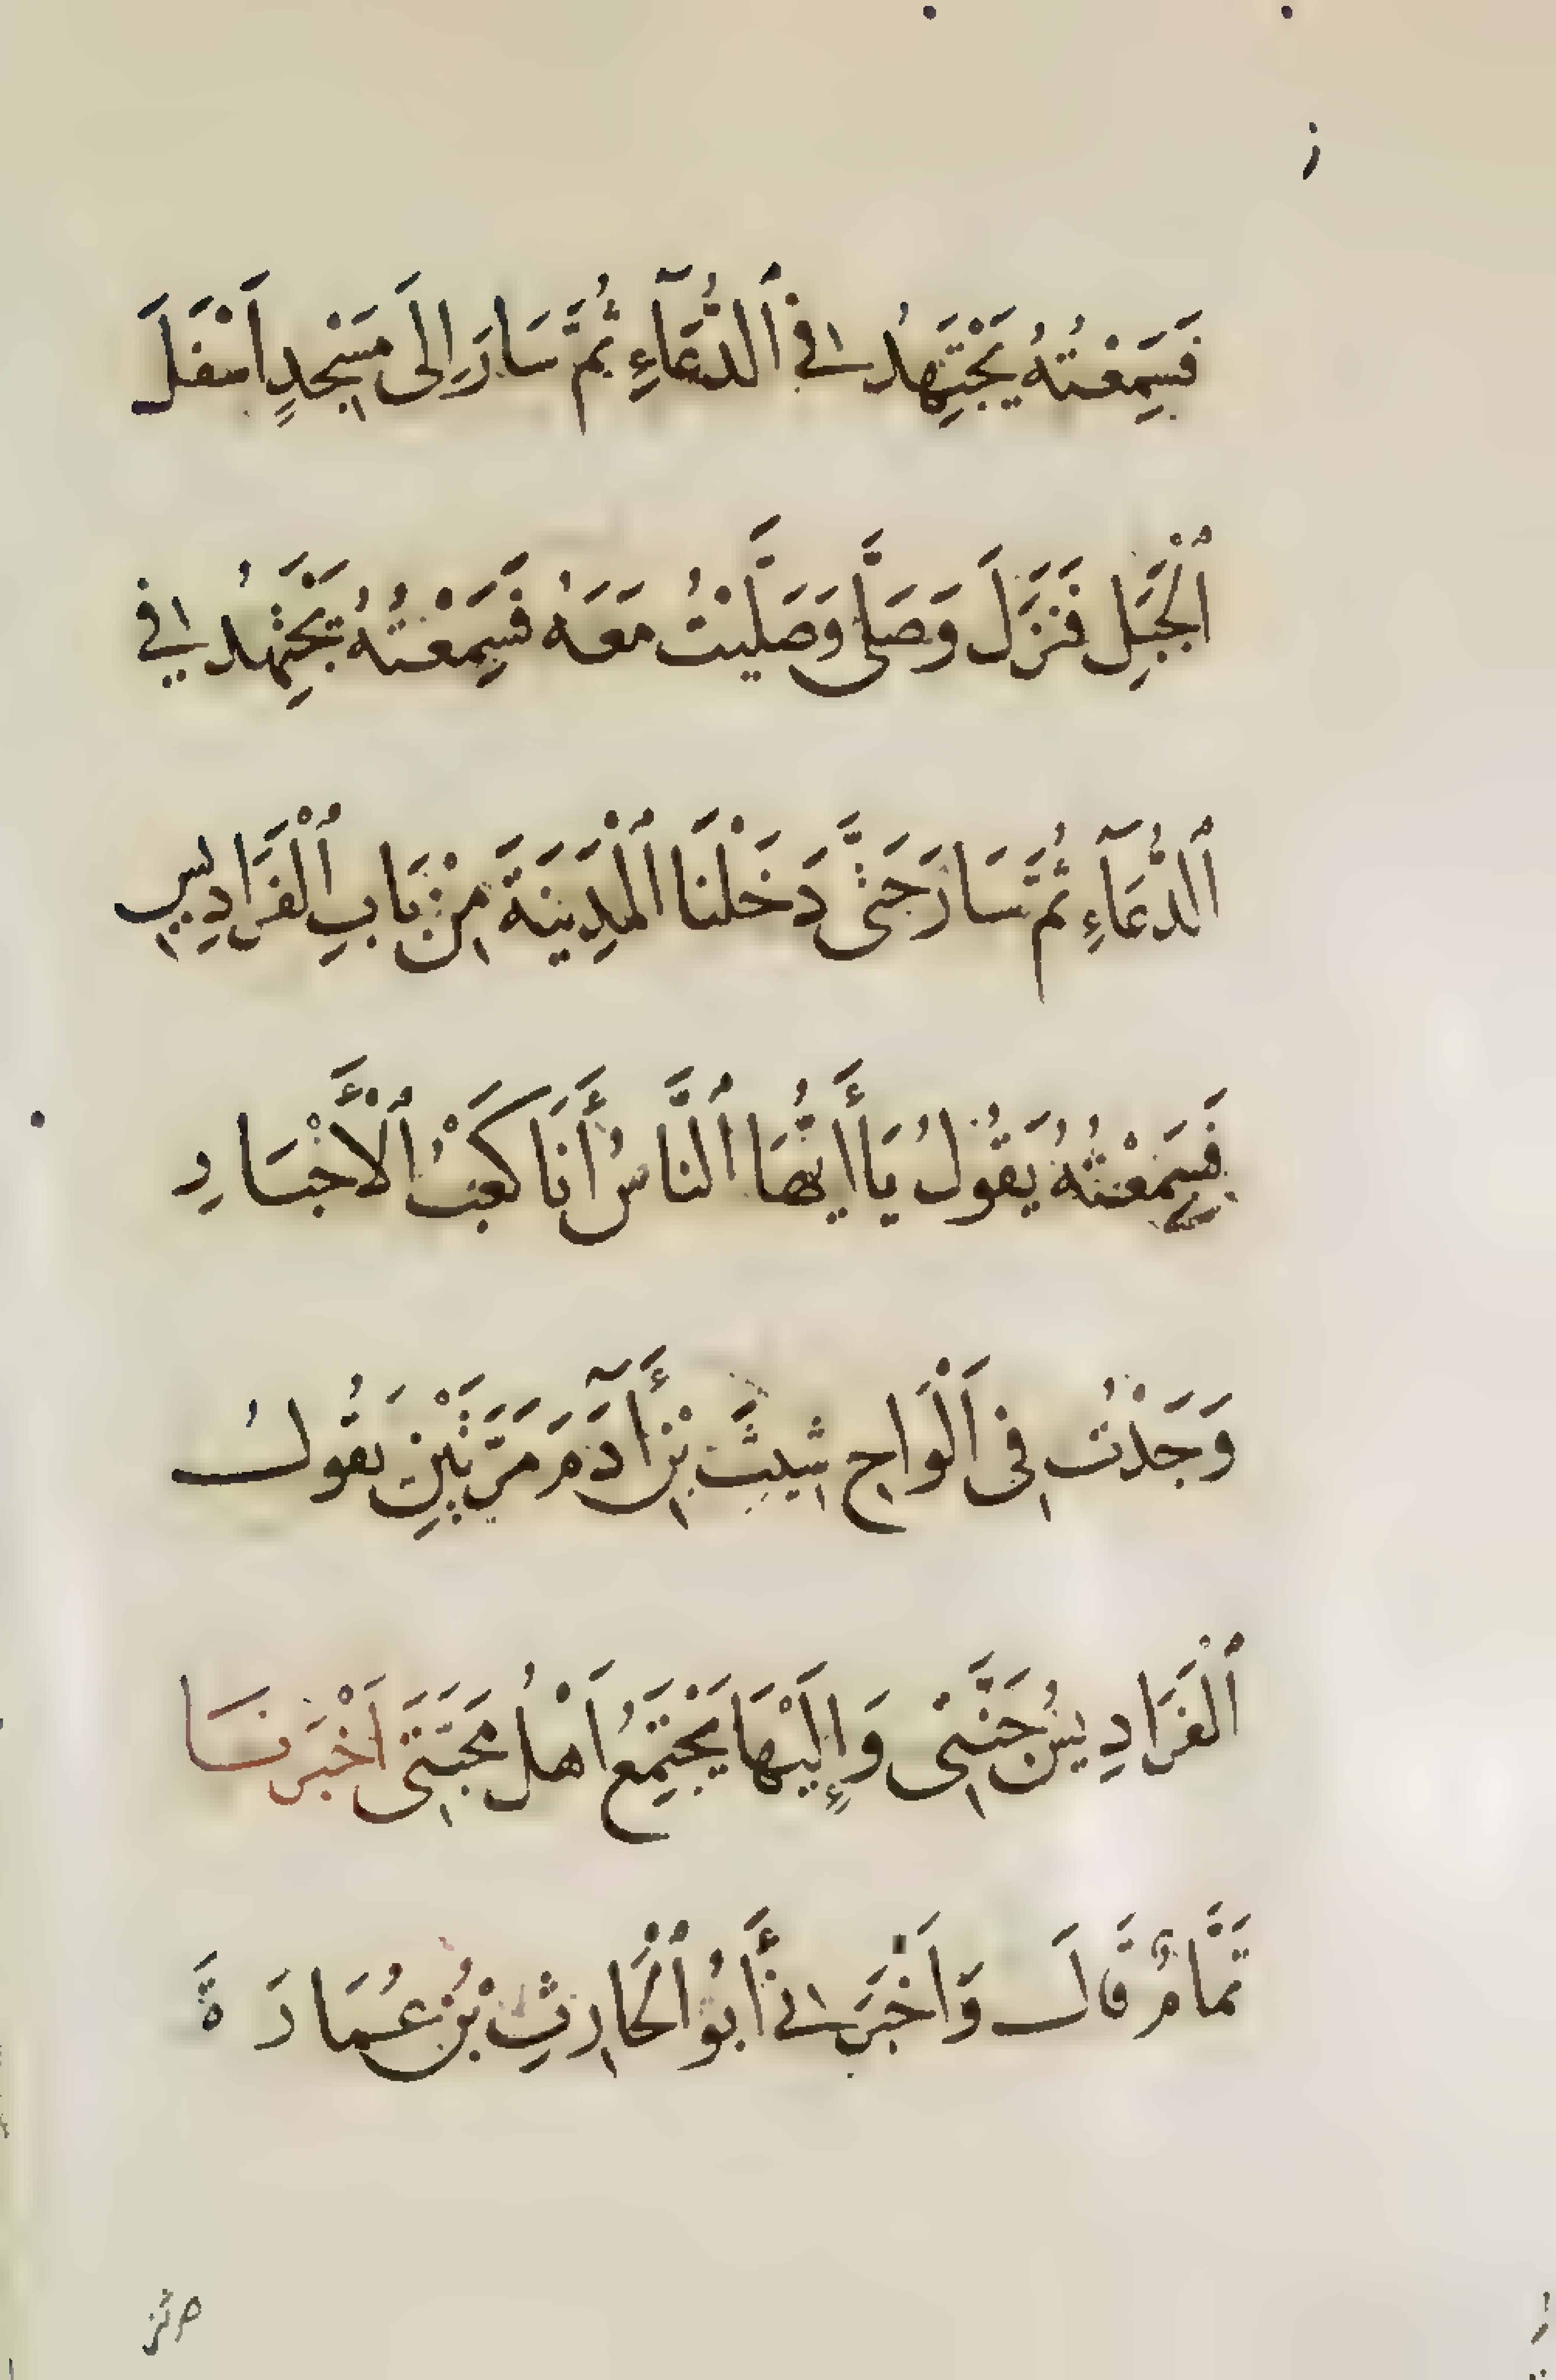 فَسَمِعْتُهُ يَجْتَهِدُ فِي ٱلدُّعَآءِ ثُمَّ سَارَ اِلَى مَسْجِدٍ اَسْفَلَ
ٱلْجَبَلِ فَنَزَلَ وَصَلَّى وَصَلَّيْتُ مَعَهُ فَسَمِعْتُهُ يَجْتَهِدُ فِي
ٱلدُّعَآءِ ثُمَّ سَارَ حَتَّى دَخَلْنَا ٱلْمَدِينَةَ مِنْ بَابِ ٱلْفَرَادِيسِ
فَسَمِعْتُهُ يَقُولُ يَا أَيُّهَا ٱلنَّاسُ أَنَا كَعْبُ ٱلْأَحْبَارِ
وَجَدْتُ فِى اَلْوَاحِ شِيثَ بْنِ أَآدَمَ مَرَّتَيْنِ يَقُولُ
ٱلْفَرَادِيسُ جَنَّتِى وَإِلَيْهَا يَجْتَمِعُ اَهْلُ مَحَبَّتِى اَخْبَرَنَا
تَمَّامٌ قَالَ وَاَخْبَرَنِي أَبُو ٱلْحَارِثِ بْنُ عُمَارَةَ